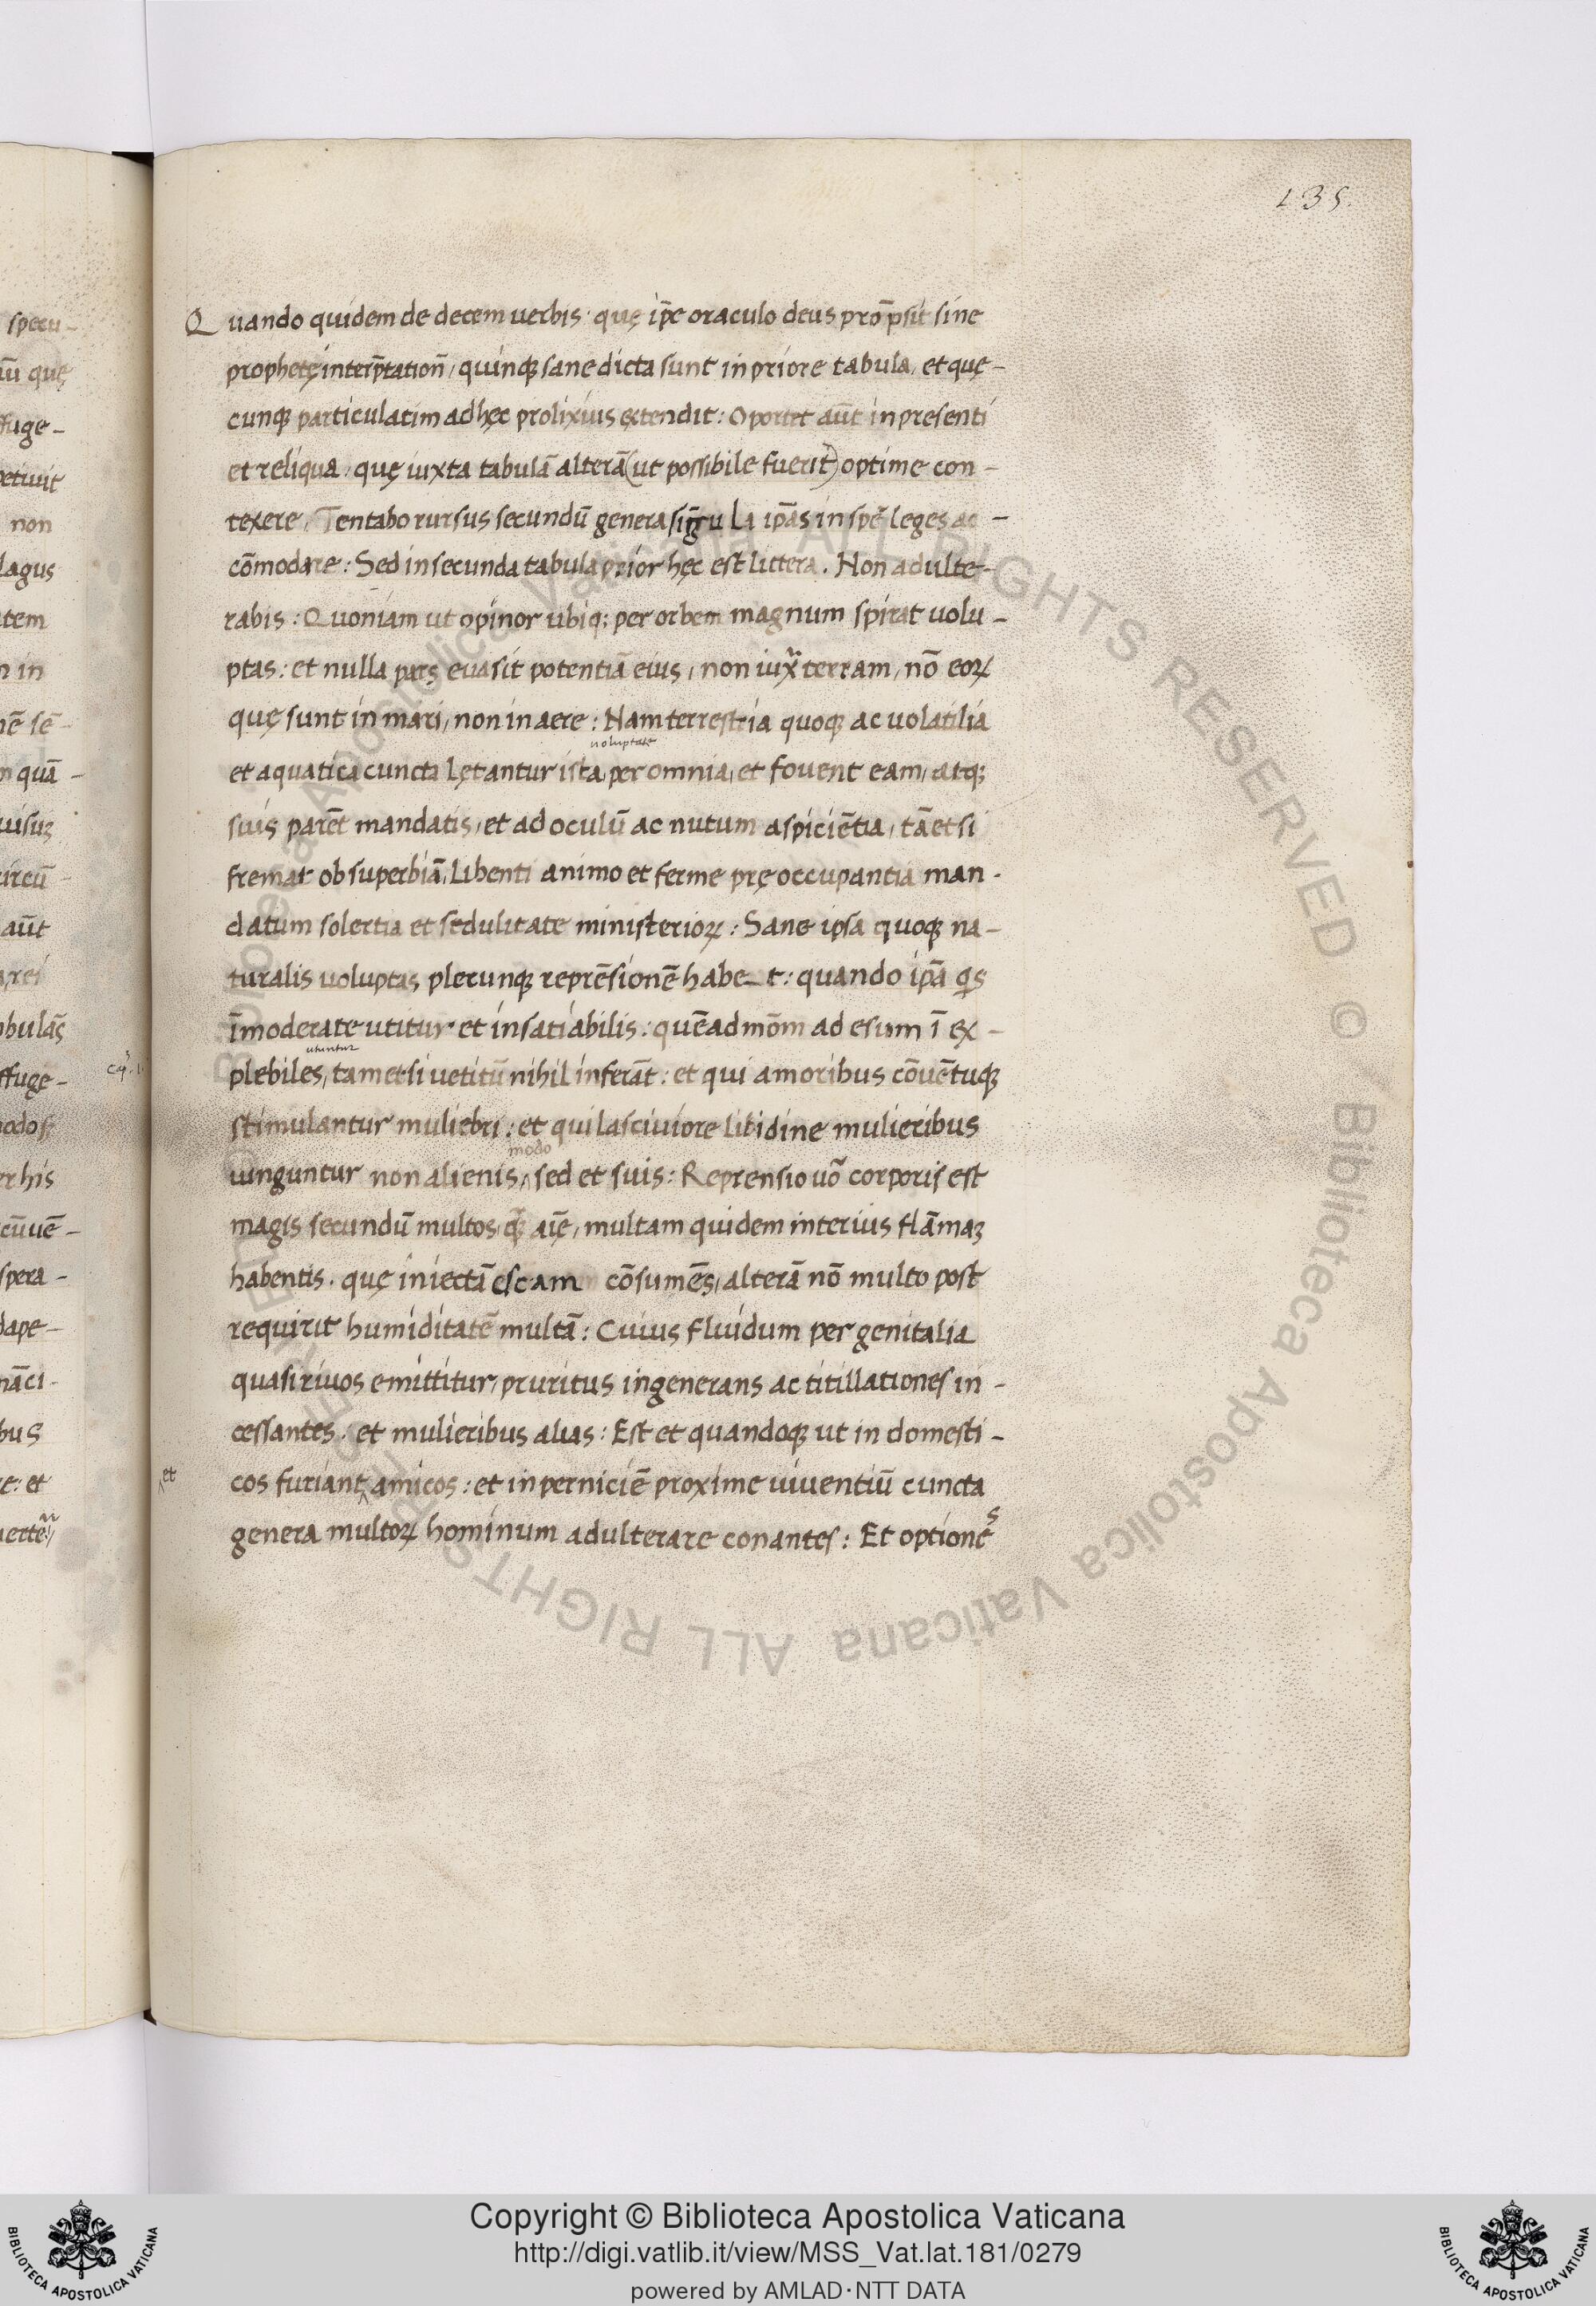 135.
Quando quidem de decem uerbis · quę ip̄e oraculo deus prōpsit sine
prophetę interp̄tation̄, quinqꝫ sane dicta sunt in priore tabula, et quę-
cunqꝫ particulatim ad hęc prolixius extendit: Oportet aūt in presenti
et reliqua, quę iuxta tabulā alterā (ut possibile fuerit) optime con-
texere, Tentabo rursus secundū genera singula ip̄as in spē leges ac-
cōmodare: Sed in secunda tabula prior hęc est littera. Non adulte-
rabis: Quoniam ut opinor ubiq; per orbem magnum spirat uolu-
ptas: et nulla pars euasit potentiā eius, non iux terram, nō eoꝝ
quę sunt in mari, non in aere: Nam terrestria quoqꝫ ac uolatilia
uoluptate
et aquatica cuncta lętantur ista, per omnia, et fouent eam, atq;
suis parēt mandatis, et ad oculū ac nutum aspiciētia, tāetsi
fremat ob superbiā, Libenti animo et ferme pręoccupantia man-
datum solertia et sedulitate ministerioꝝ: Sane ipsa quoqꝫ na-
turalis uoluptas plerunqꝫ reprēsionē habe-t: quando ip̄ā qs
īmoderate utitur et insatiabilis: quēadmōm ad esum ī ex-
utuntur
plebiles, tametsi uetitū nihil inferāt: et qui amoribus cōuētuqꝫ
stimulantur muliebri: et qui lasciuiore libidine mulieribus
modo
iunguntur non alienis, sed et suis: Reprensio uō corporis est
magis secundū multos, q̄ aīę, multam quidem interius flāmaꝫ
habentis. quę iniectā escam cōsumēs, alterā nō multo post
requirit humiditatē multā: Cuius fluidum per genitalia
quasi riuos emittitur, pruritus ingenerans ac titillationes in-
cessantes, et mulieribus alias: Est et quandoqꝫ ut in domesti-
et
cos furiant amicos: et in perniciē proxime uiuentiū cuncta
genera multoꝝ hominum adulterare conantes: Et optiones
© Biblioteca Apostolica Vaticana ALL RIGHTS RESERVED
Copyright © Biblioteca Apostolica Vaticana
http://digi.vatlib.it/view/MSS_Vat.lat.181/0279
powered by AMLAD·NTT DATA
BIBLIOTECA APOSTOLICA VATICANA
BIBLIOTECA APOSTOLICA VATICANA